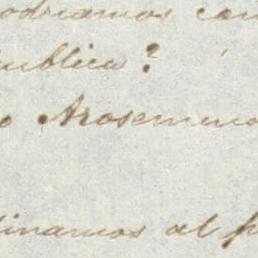 odriamos con
ublica?
o Arosemena
inamos al p